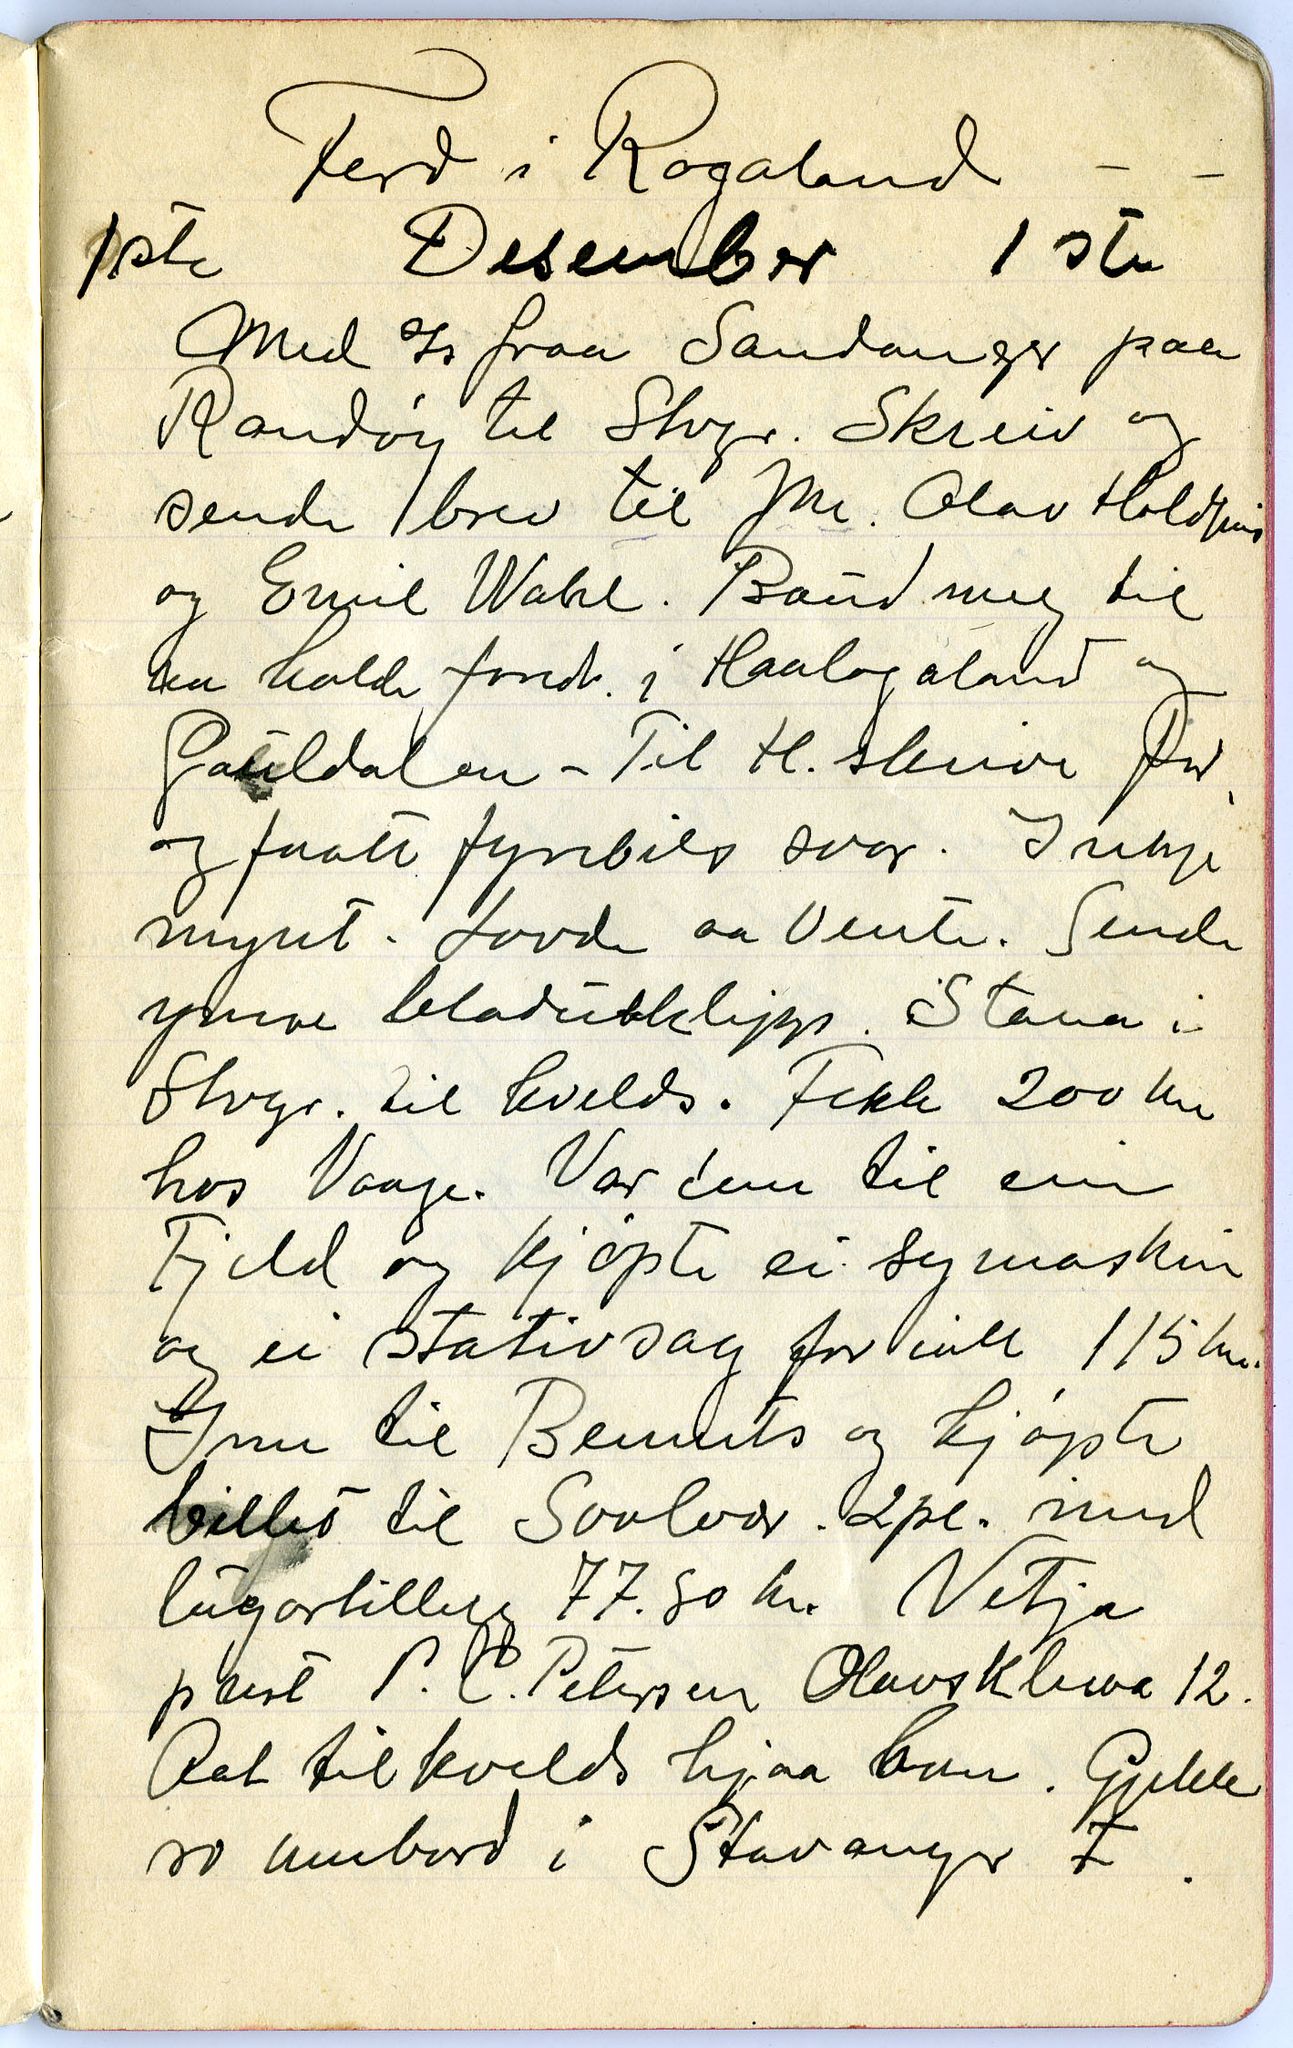 Ferd i Rogaland - -
1ste Desember 1ste
Med s/s fraa Sandanger paa
Randöy til Stvgr. Skreiv og
sende brev til Olav
og Emil Wahl. Baud meg til
aa halde fored. i Haalogaland og
Gauldalen - Til H. skrive för,
og faatt fyrebils svar. Inkje
mynt. Lovde aa vente. Sende
ymse bladutklipp. Stana i
Stvgr. til kvelds. Fekk 200 kr
hos Vaage. Var inn til ein
Fjeld og kjöpte ei symaskin
og ei stativsag for ialt 115 kr.
Inn til Bennets og kjöpte
billet til Svolvær. 2pl. med
lugartillegg 77.80 kr. Vitja
prest P. C. Petersen Olavskleiva 12.
Aat til kvelds hjaa han. Gjekk
so umbord i Stavanger I.